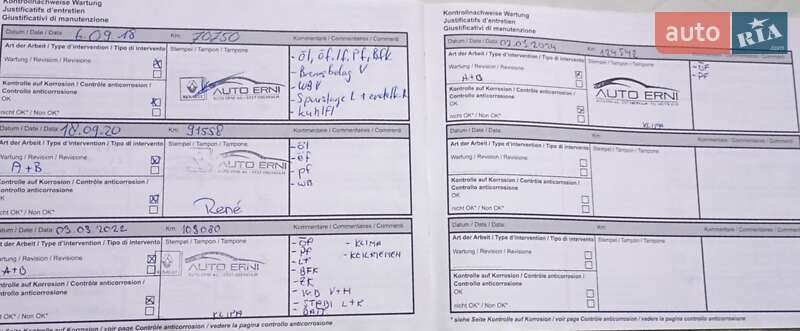 Kontrollnachweise Wartung
Justificatifs d'entretien
Giustificativi di manutenzione
Datum / Date / Data: 6.09.18 Km: 70750
Art der Arbeit / Type d'intervention / Tipo di intervento
Stempel / Timpon / Tampone
Kommentare / Commentaires / Commenti
Wartung / Revision / Revisione
Kontrolle auf Korrosion / Contrôle anticorrosion /
Controllo anticorrosione
OK
nicht OK* / Non OK*
RENAULT
AUTO ERNI
- öl, öf, lf, Pf, Bfk
- Bremsbelag V
- WBV
- Kühlfl
Datum / Date / Data: 18.09.20 Km: 91558
Art der Arbeit / Type d'intervention / Tipo di intervento
Stempel / Tampon / Tampone
Kommentare / Commentaires / Commenti
Wartung / Revision / Revisione
A+B
Kontrolle auf Korrosion / Contrôle anticorrosion /
Controllo anticorrosione
OK
nicht OK* / Non OK*
AUTO ERNI
René
- öl
- öf
- pf
- WB
Datum / Date / Data: 03.03.2022 Km: 103080
Art der Arbeit / Type d'intervention / Tipo di intervento
Stempel / Tampon / Tampone
Kommentare / Commentaires / Commenti
Wartung / Revision / Revisione
A+B
Kontrolle auf Korrosion / Contrôle anticorrosion /
Controllo anticorrosione
OK
nicht OK* / Non OK*
AUTO ERNI
KLIMA
- ÖF - KLIMA
- PF - KEILRIEMEN
- LF
- BFK
- ZK
- WB V+H
- STABI L+R
- BATT
* siehe Seite Kontrolle auf Korrosion / voir page Contrôle anticorrosion / vedere la pagina controllo anticorrosione
Kontrollnachweise Wartung
Justificatifs d'entretien
Giustificativi di manutenzione
Datum / Date / Data: 02.01.2024 Km: 124542
Art der Arbeit / Type d'intervention / Tipo di intervento
Stempel / Tampon / Tampone
Kommentare / Commentaires / Commenti
Wartung / Revision / Revisione
A+B
Kontrolle auf Korrosion / Contrôle anticorrosion /
Controllo anticorrosione
OK
nicht OK* / Non OK*
AUTO ERNI
KLIMA
- ÖF
- PF
Datum / Date / Data: Km:
Art der Arbeit / Type d'intervention / Tipo di intervento
Stempel / Tampon / Tampone
Kommentare / Commentaires / Commenti
Wartung / Revision / Revisione
Kontrolle auf Korrosion / Contrôle anticorrosion /
Controllo anticorrosione
OK
nicht OK* / Non OK*
Datum / Date / Data: Km:
Art der Arbeit / Type d'intervention / Tipo di intervento
Stempel / Tampon / Tampone
Kommentare / Commentaires / Commenti
Wartung / Revision / Revisione
Kontrolle auf Korrosion / Contrôle anticorrosion /
Controllo anticorrosione
OK
nicht OK* / Non OK*
* siehe Seite Kontrolle auf Korrosion / voir page Contrôle anticorrosion / vedere la pagina controllo anticorrosione
auto RIA.com